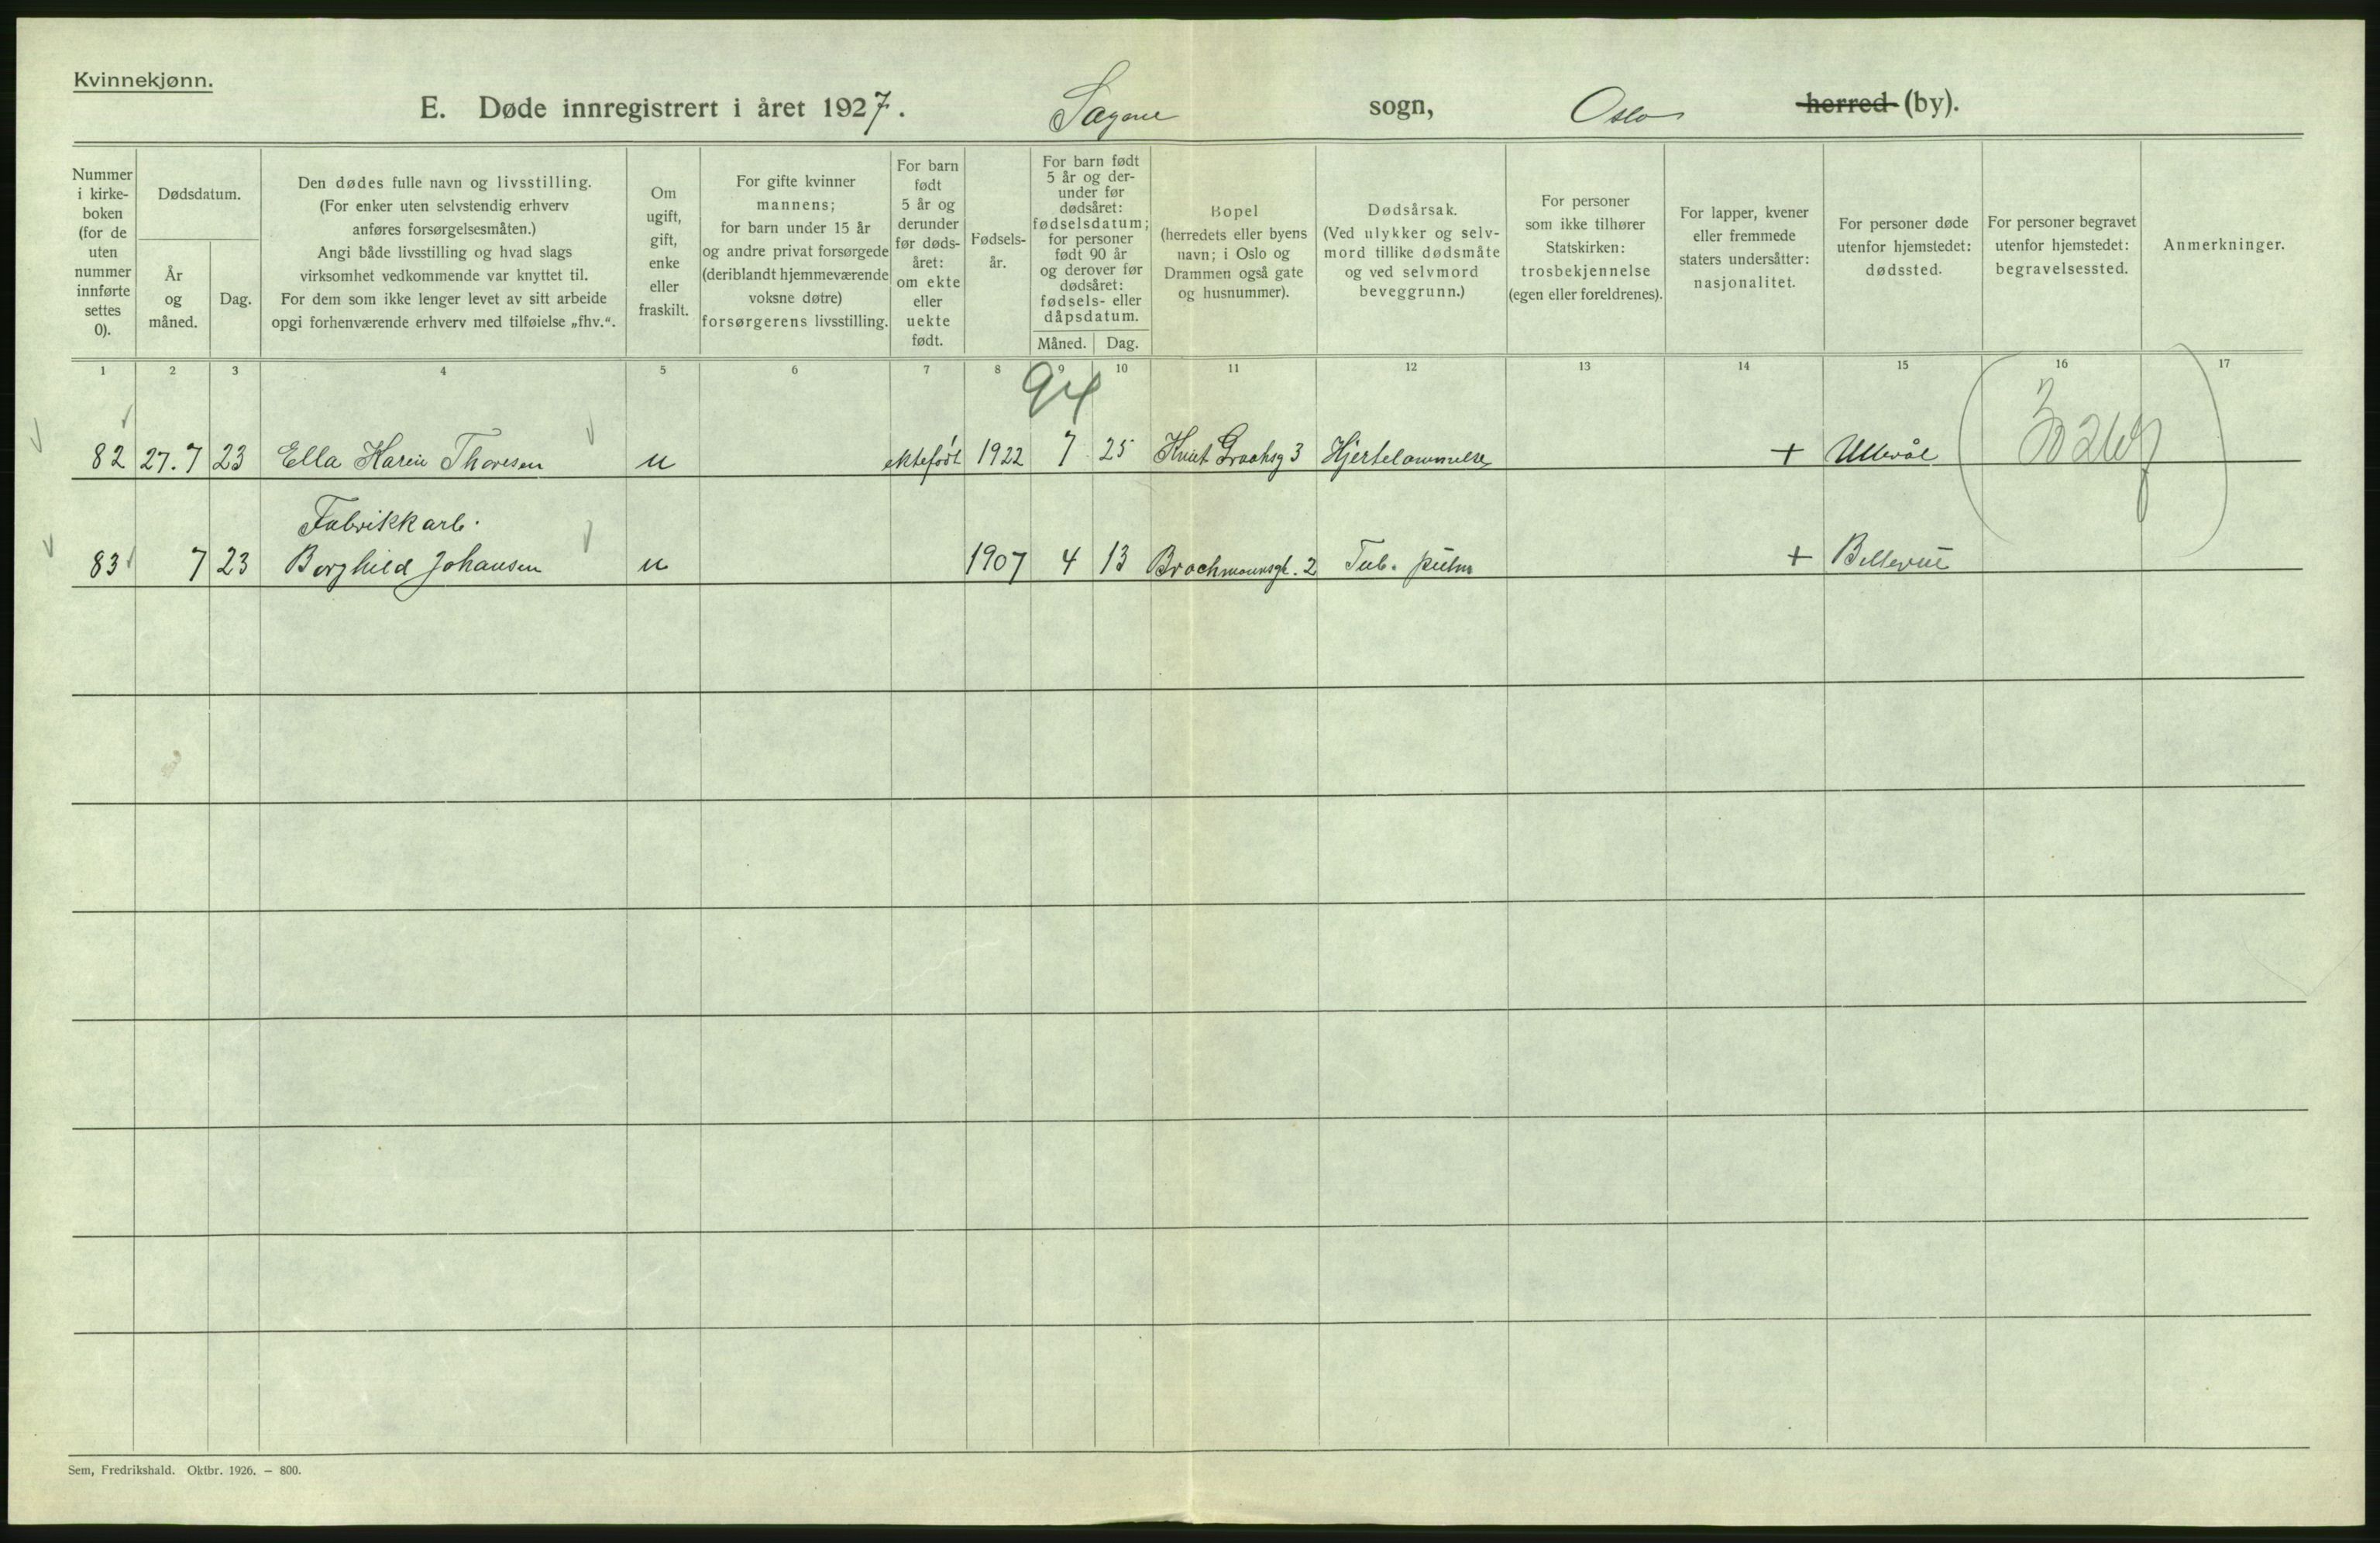 Kvinnekjønn.
E. Døde innregistrert i året 1927. Sagene sogn, Oslo herred (by).
Nummer i kirke-boken (for de uten nummer innførte settes 0).
Dødsdatum.
År og måned.
Dag.
Den dødes fulle navn og livsstilling.
(For enker uten selvstendig erhverv
anføres forsørgelsesmåten.)
Angi både livsstilling og hvad slags
virksomhet vedkommende var knyttet til.
For dem som ikke lenger levet av sitt arbeide
opgi forhenværende erhverv med tilføielse „fhv.“.
Om
ugift,
gift,
enke
eller
fraskilt.
For gifte kvinner
mannens;
for barn under 15 år
og andre privat forsørgede
(deriblandt hjemmeværende
voksne døtre)
forsørgerens livsstilling.
For barn
født
5 år og
derunder
før døds-
året:
om ekte
eller
uekte
født.
Fødsels-
år.
For barn født
5 år og der-
under før
dødsåret:
fødselsdatum;
for personer
født 90 år
og derover før
dødsåret:
fødsels- eller
dåpsdatum.
Måned. Dag.
Bopel
(herredets eller byens
navn; i Oslo og
Drammen også gate
og husnummer).
Dødsårsak.
(Ved ulykker og selv-
mord tillike dødsmåte
og ved selvmord
beveggrunn.)
For personer
som ikke tilhører
Statskirken:
trosbekjennelse
(egen eller foreldrenes).
For lapper, kvener
eller fremmede
staters undersåtter:
nasjonalitet.
For personer døde
utenfor hjemstedet:
dødssted.
For personer begravet
utenfor hjemstedet:
begravelsessted.
Anmerkninger.
1 2 3 4 5 6 7 8 9 10 11 12 13 14 15 16 17
94
82 27.7 23 Ella Karin Thoresen u ektefødt 1922 7 25 Knut Graahsg 3 Hjertelammelse + Ullevål
Fabrikkarb.
83 7 23 Borghild Johansen u 1907 4 13 Brochmannsgt. 2 Tub. pulm + Bellevue
Sem, Fredrikshald. Oktbr. 1926. — 800.